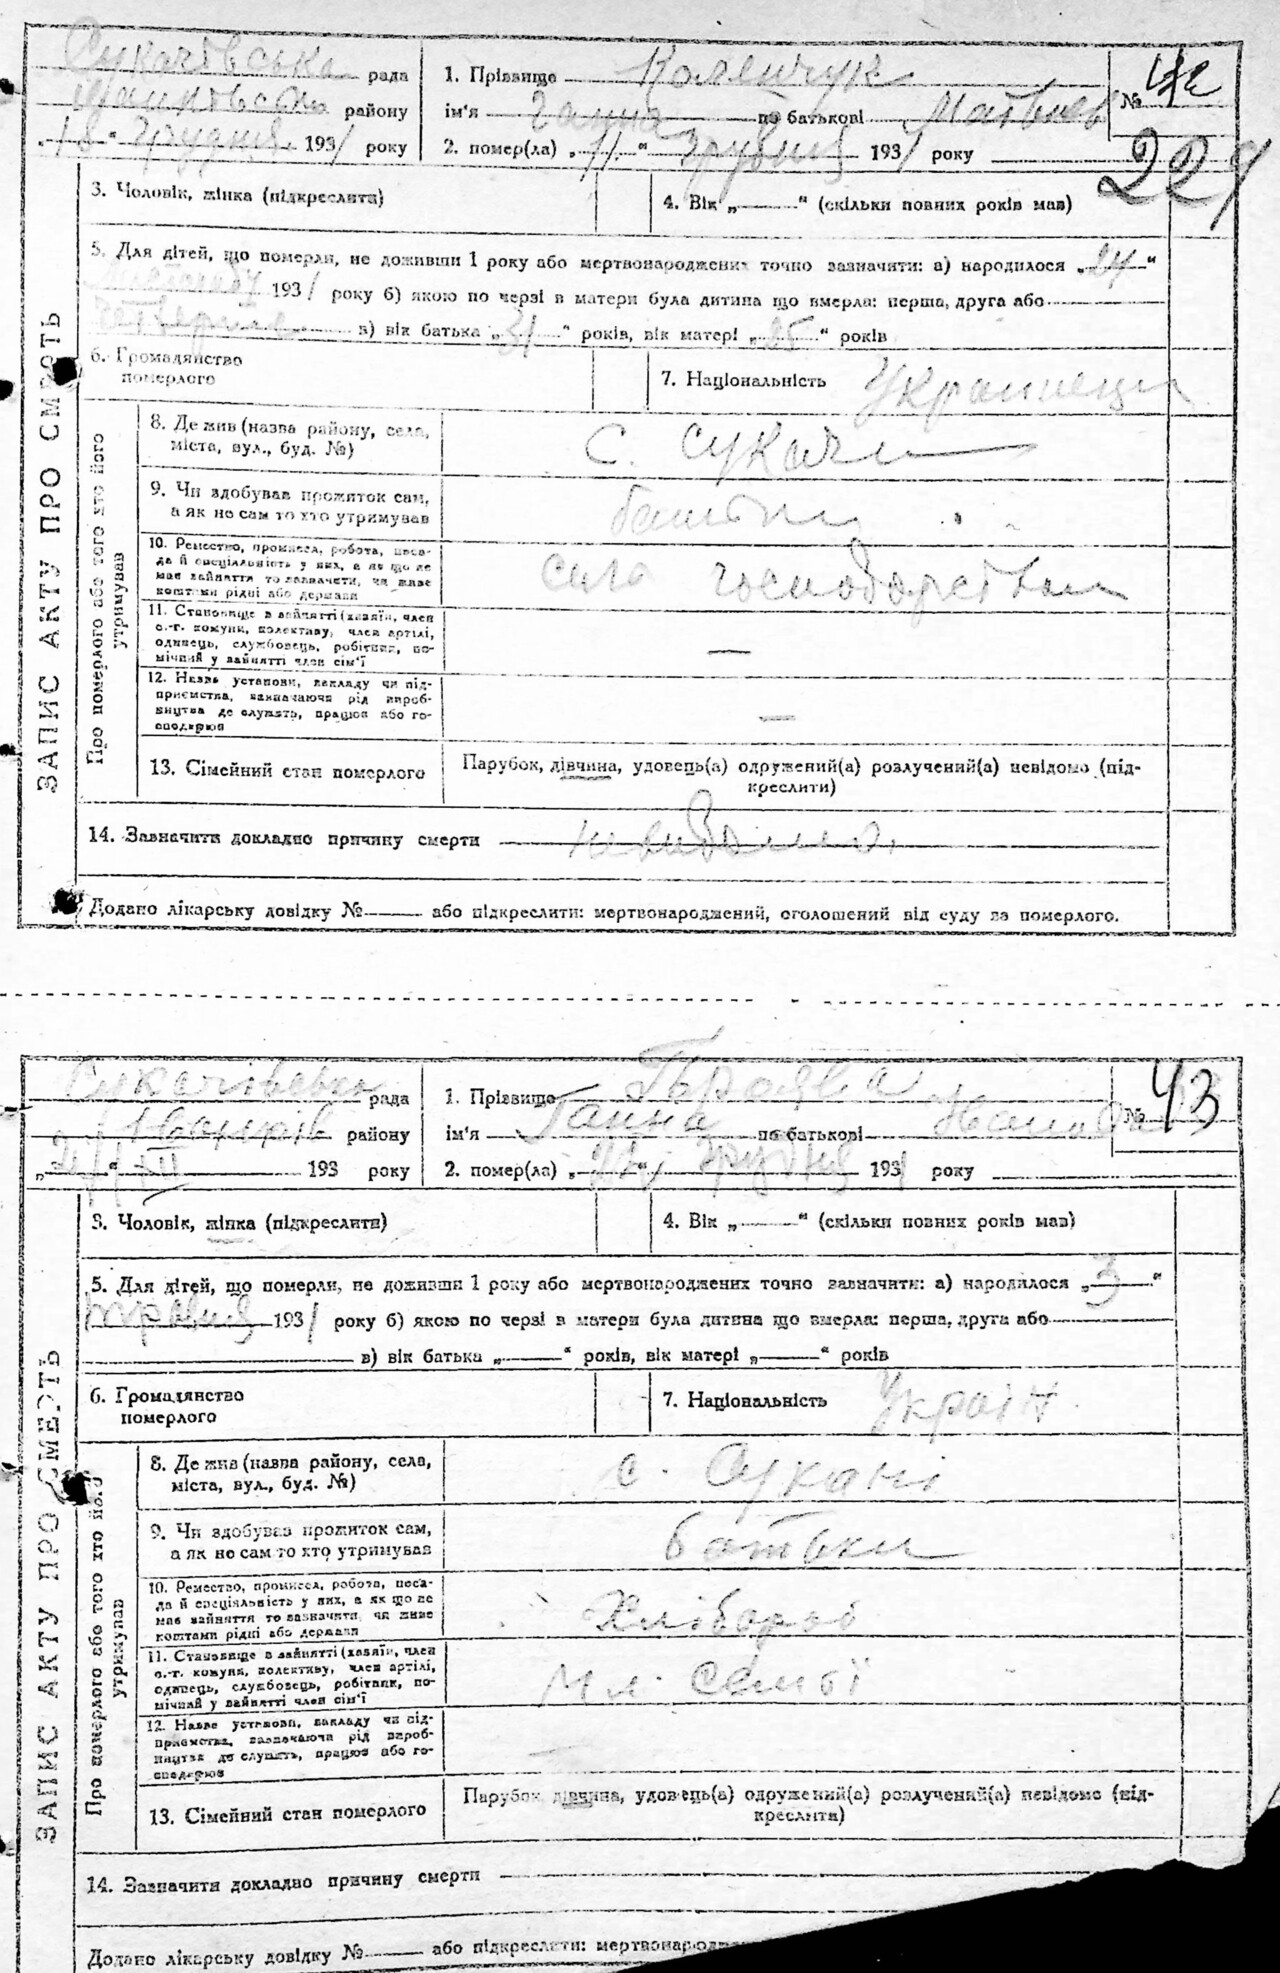 Сукачівська рада
району
"18" Грудня 1931 року
1. Прізвище Коленчук
ім'я Ганна по батькові Матвіев
2. помер(ла) „11“ Грудня 1931 року
№ 42
227
ЗАПИС АКТУ ПРО СМЕРТЬ
3. Чоловік, жінка (підкреслити)
4. Вік „——“ (скільки повних років мав)
5. Для дітей, що померли, не доживши 1 року або мертвонароджених точно зазначити: а) народилося „24“
1931 року б) якою по черзі в матери була дитина що вмерла: перша, друга або
четверта в) вік батька „31“ років, вік матері „25“ років
6. Громадянство
померлого
7. Національність Украинець
Про померлого або того хто його
утримував
8. Де жив (назва району, села,
міста, вул., буд. №)
с. Сукачи
9. Чи здобував прожиток сам,
а як не сам то хто утримував
батьки
10. Ремество, промисел, робота, поса-
да й спеціяльність у них, а як що не
має зайняття то зазначити, чи живе
коштами рідні або держави
сил господарством
11. Становище в зайнятті (хазяїн, член
с.-г. комуни, колективу, член артілі,
одинець, службовець, робітник, по-
мічний у зайнятті член сім'ї
—
12. Назва установи, закладу чи під-
приємства, зазначаючи рід вироб-
ництва де служить, працює або го-
сподарює
—
13. Сімейний стан померлого
Парубок, дівчина, удовець(а) одружений(а) розлучений(а) невідомо (під-
креслити)
14. Зазначити докладно причину смерти невидомо.
Додано лікарську довідку №—— або підкреслити: мертвонароджений, оголошений від суду за померлого.
Сукачівська рада
Іванків району
"24/XII" 193 року
1. Прізвище
ім'я Ганна по батькові Іванівна
2. помер(ла) „22“ грудня 1931 року
№ 43
ЗАПИС АКТУ ПРО СМЕРТЬ
3. Чоловік, жінка (підкреслити)
4. Вік „——“ (скільки повних років мав)
5. Для дітей, що померли, не доживши 1 року або мертвонароджених точно зазначити: а) народилося „3“
травня 1931 року б) якою по черзі в матери була дитина що вмерла: перша, друга або
в) вік батька „——“ років, вік матері „——“ років
6. Громадянство
померлого
7. Національність Україн.
Про померлого або того хто його
утримував
8. Де жив (назва району, села,
міста, вул., буд. №)
с. Сукачі
9. Чи здобував прожиток сам,
а як не сам то хто утримував
батьки
10. Ремество, промисел, робота, поса-
да й спеціяльність у них, а як що не
має зайняття то зазначити, чи живе
коштами рідні або держави
Хлібороб
11. Становище в зайнятті (хазяїн, член
с.-г. комуни, колективу, член артілі,
одинець, службовець, робітник, по-
мічний у зайнятті член сім'ї
чл. семьї
12. Назва установи, закладу чи під-
приємства, зазначаючи рід вироб-
ництва де служить, працює або го-
сподарює
13. Сімейний стан померлого
Парубок, дівчина, удовець(а) одружений(а) розлучений(а) невідомо (під-
креслити)
14. Зазначити докладно причину смерти
Додано лікарську довідку №—— або підкреслити: